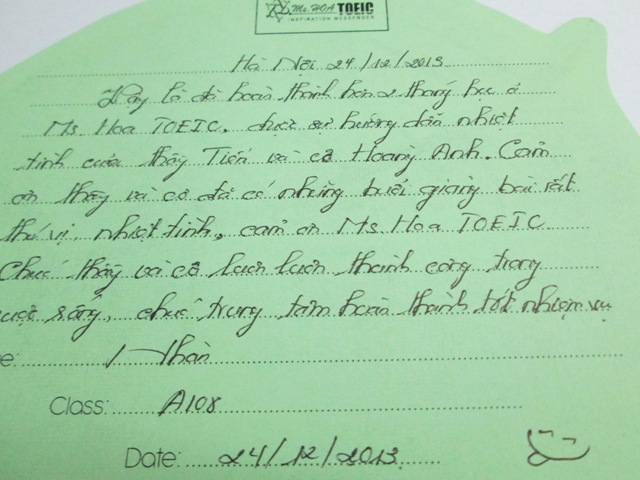 Ms. HOA TOEIC
INSPIRATION MESSENGER
Hà Nội 24/12/2013
Vậy là đã hoàn thành hơn 2 tháng học ở
Ms Hoa TOEIC. được sự hướng dẫn nhiệt
tình của thầy Tiến và cô Hoàng Anh. Cảm
ơn thầy và cô đã có những buổi giảng bài rất
thú vị, nhiệt tình, cảm ơn Ms Hoa TOEIC
Chúc thầy và cô luôn luôn thành công trong
cuộc sống, chúc trung tâm hoàn thành tốt nhiệm vụ
e: Thản
Class: A108
Date: 24/12/2013